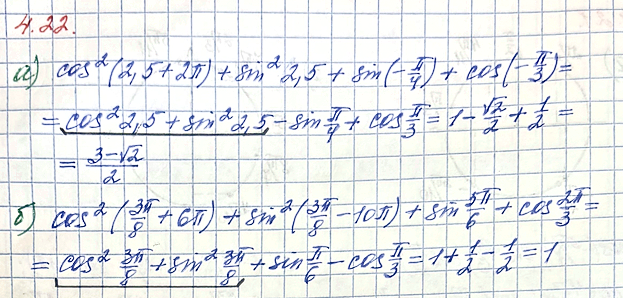 4.22.
а) cos²(2,5+2π) + sin² 2,5 + sin(-π/4) + cos(-π/3) =
= cos² 2,5 + sin² 2,5 - sin π/4 + cos π/3 = 1 - √2/2 + 1/2 =
= (3-√2)/2
б) cos² (3π/8 + 6π) + sin² (3π/8 - 10π) + sin 5π/6 + cos 2π/3 =
= cos² 3π/8 + sin² 3π/8 + sin π/6 - cos π/3 = 1 + 1/2 - 1/2 = 1